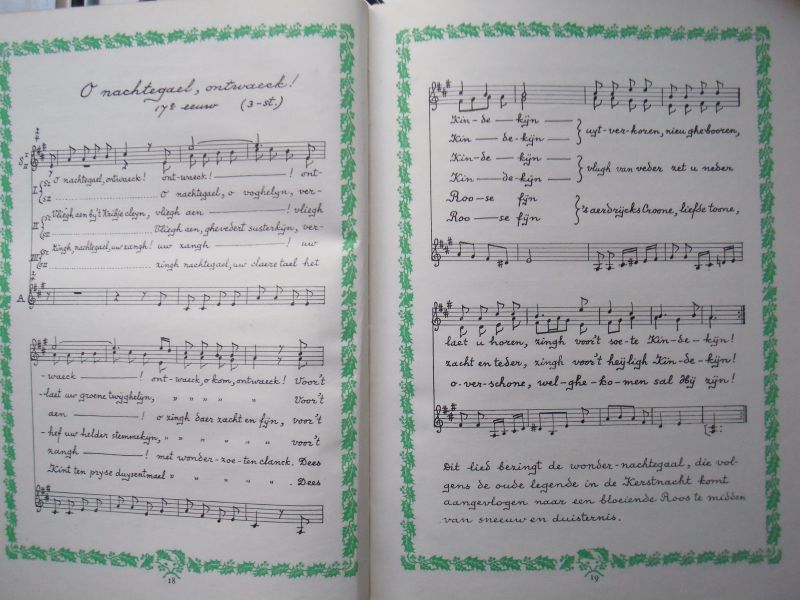 O nachtegael, ontwaeck!
17e eeuw (3-st.)
O nachtegael, ontwaeck! ont-waeck! ont-
O nachtegael, o voghelyn, ver-
Vliegh aen by't Kribje cleyn, vliegh aen! vliegh
Vliegh aen, ghevedert susterkijn, ver-
Zingh nachtegael, uw zangh! uw zangh! uw
zingh nachtegael, uw claere tael het
A.
-waeck! ont-waeck, o kom, ontwaeck! Voor't
-laet uw groene twyghelyn, " " " " Voor't
aen! o zingh daer zacht en fijn, " voor't
-hef uw helder stemmekijn, " " " " voor't
zangh! met wonder-zoe-ten clanck. Dees
Kint ten pryse duysentmael " " " . Dees
18
Kin-de-kijn
Kin-de-kijn
uyt-ver-koren, nieu gheboren,
Kin-de-kijn
Kin-de-kijn
vlugh van veder zet u neder
Roo-se fijn
Roo-se fijn
's aerdrijcks Croone, liefde toone,
laet u horen, zingh voor't soe-te Kin-de-kijn!
zacht en teder, zingh voor't heyligh Kin-de-kijn!
o-ver-schone, wel-ghe-ko-men sal Hij zijn!
Dit lied bezingt de wonder-nachtegaal, die vol-
gens de oude legende in de Kerstnacht komt
aangevlogen naar een bloeiende Roos te midden
van sneeuw en duisternis.
19